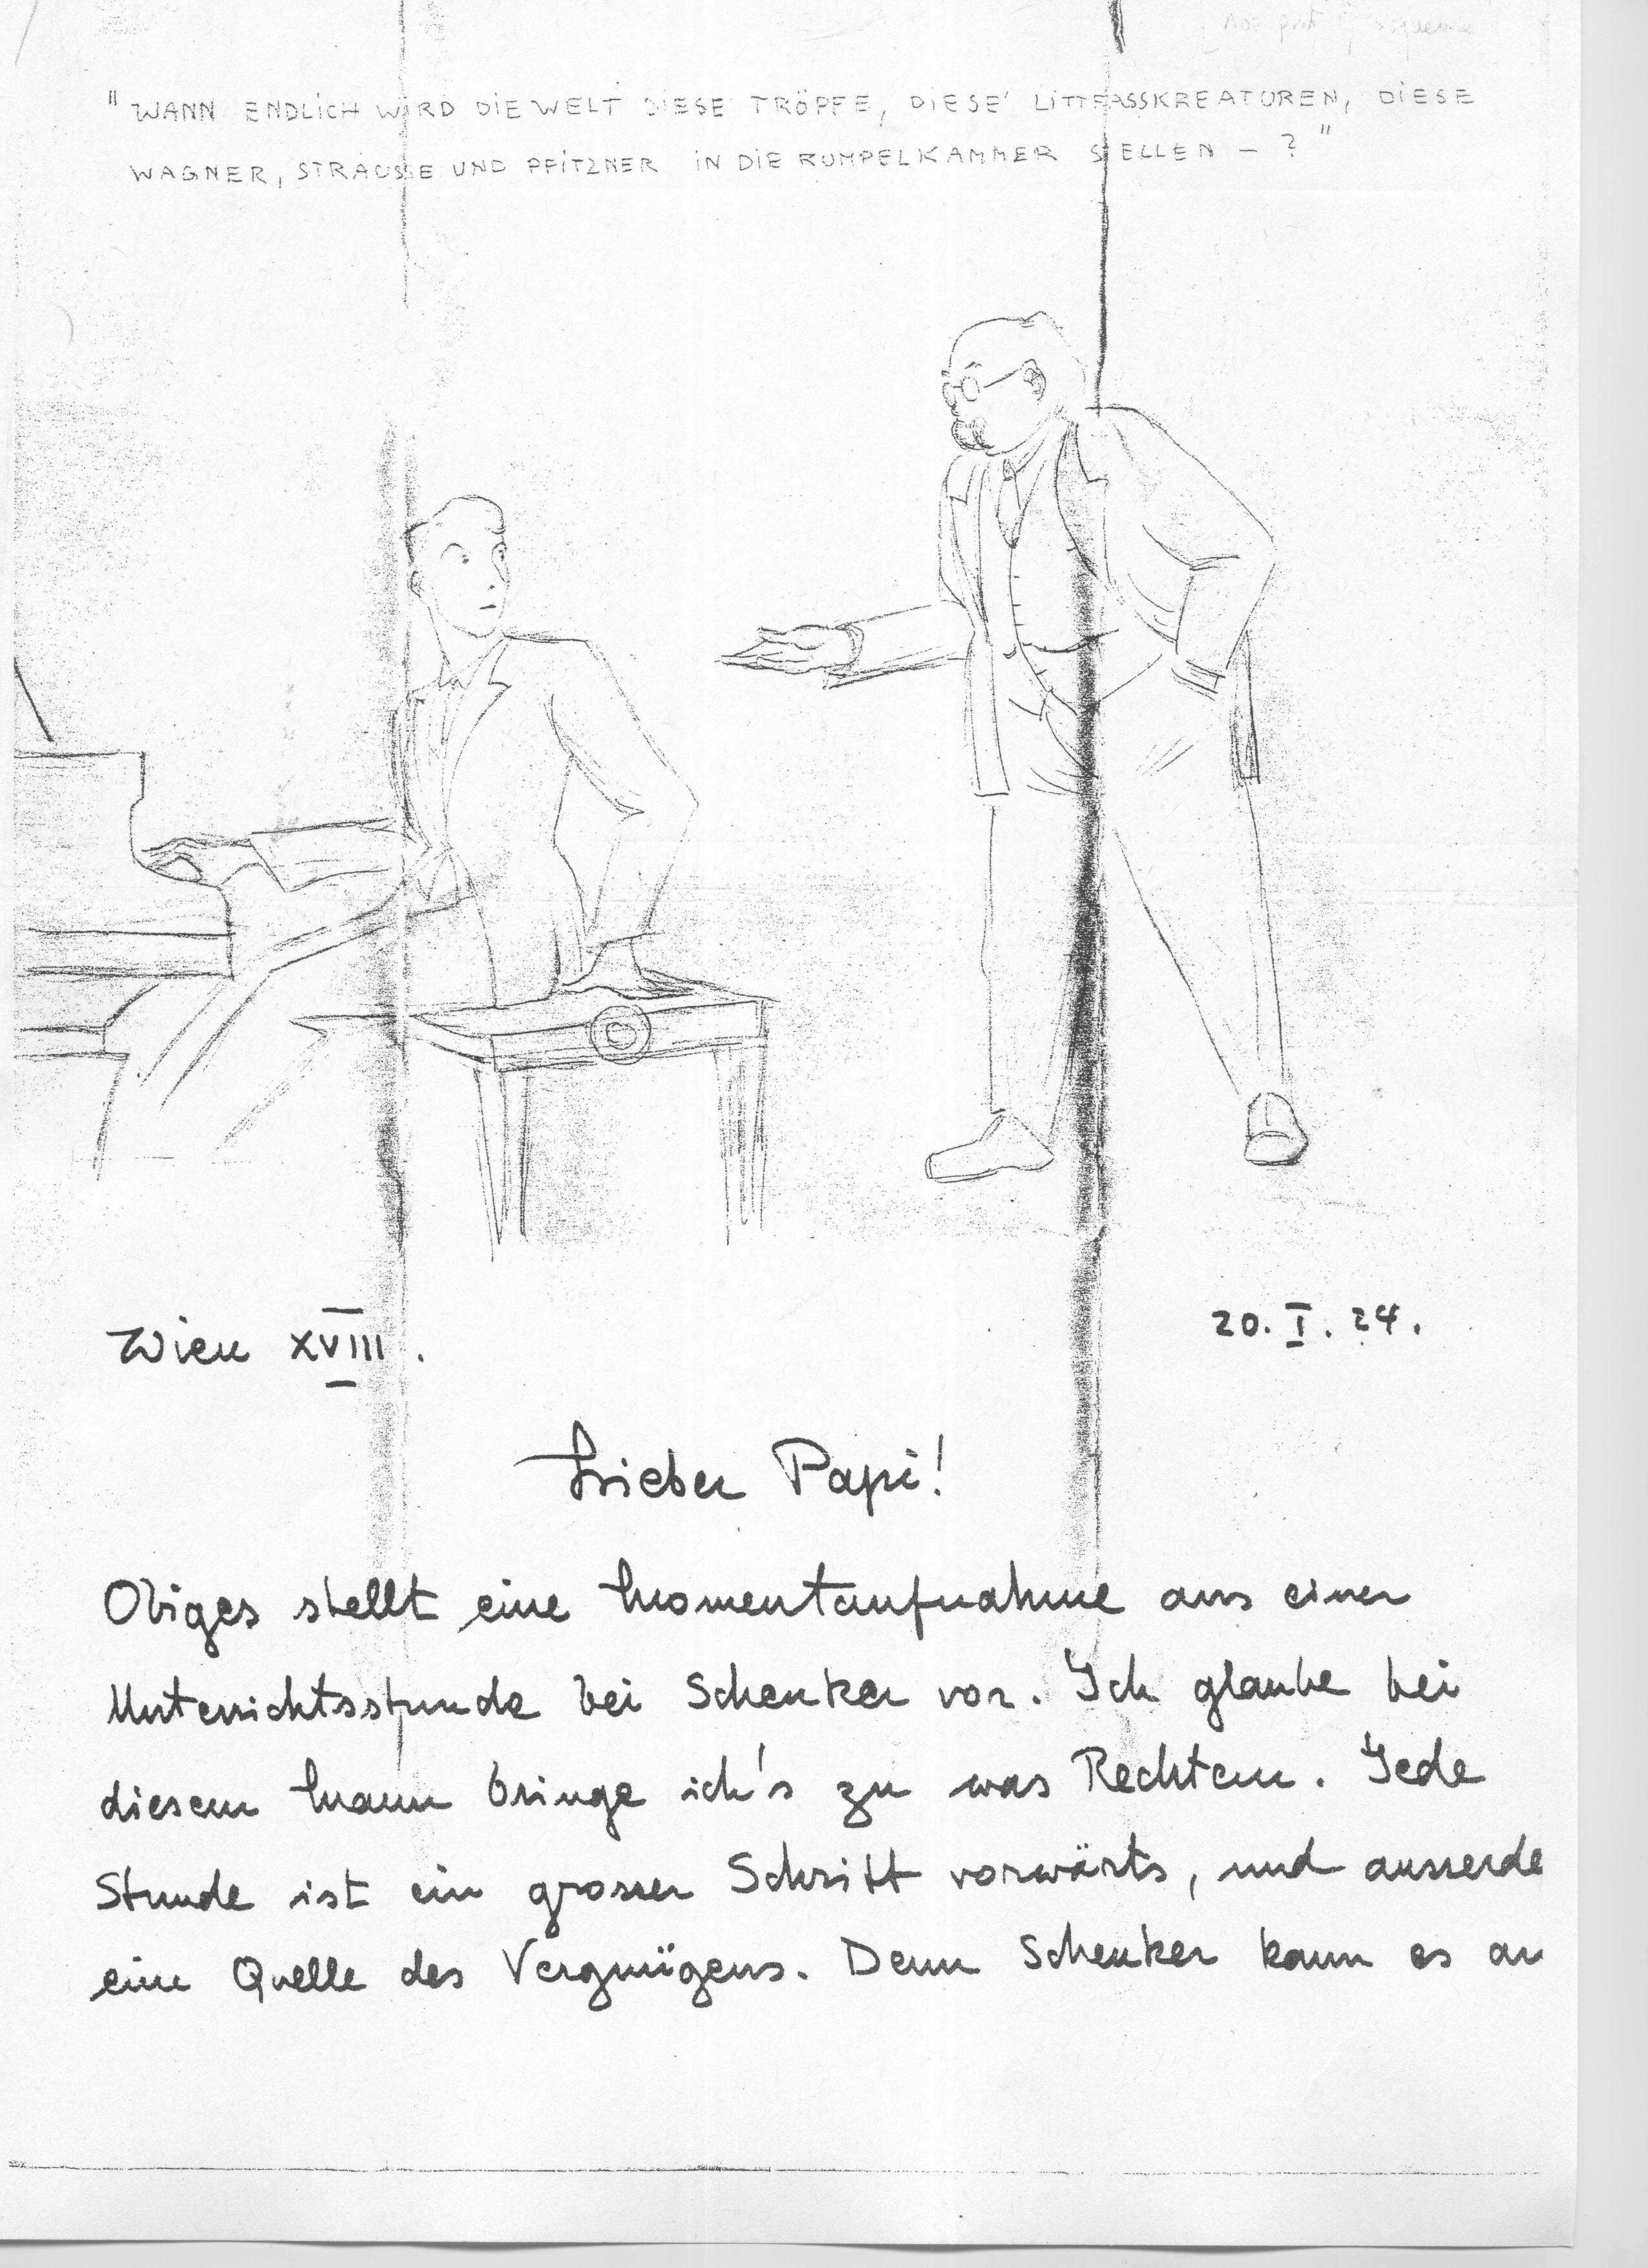 "WANN ENDLICH WIRD DIE WELT DIESE TRÖPFE, DIESE LITTFASSKREATUREN, DIESE
WAGNER, STRAUSSE UND PFITZNER IN DIE RUMPELKAMMER STELLEN – ?"
Wien XVIII.
20. I. 24.
Lieber Papi!
Obiges stellt eine Momentaufnahme aus einer
Unterrichtsstunde bei Schenker vor. Ich glaube bei
diesem Mann bringe ich's zu was Rechtem. Jede
Stunde ist ein grosser Schritt vorwärts, und ausserde
eine Quelle des Vergnügens. Denn Schenker kann es an